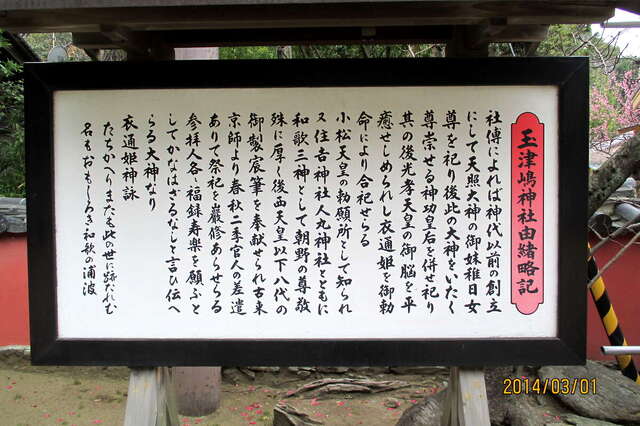 玉津嶋神社由緒略記
社傳によれば神代以前の創立
にして天照大神の御妹稚日女
尊を祀り後此の大神をいたく
尊崇せる神功皇后を併せ祀り
其の後光孝天皇の御脳を平
癒せしめられし衣通姫を御勅
命により合祀せらる
小松天皇の勅願所として知られ
又住吉神社人丸神社とともに
和歌三神として朝野の尊敬
殊に厚く後西天皇以下八代の
御製宸筆を奉献せられ古来
京師より春秋二季官人の差遣
ありて祭祀を厳修あらせらる
参拝人各々福録寿楽を願ふと
してかなはざるなしと言ひ伝へ
らる大神なり
衣通姫神詠
たちかへりまたも此の世に跡たれむ
名もおもしろき和歌の浦波
2014/03/01